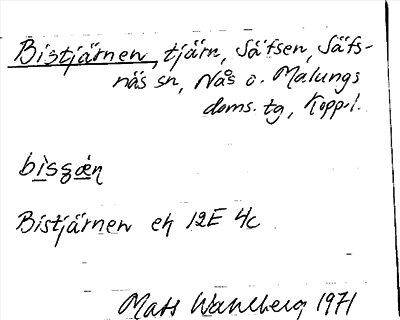 Bistjärnen, tjärn, Säfsen, Säfs-
näs sn, Nås o. Malungs
doms. tg, Kopp.l.
Bistjärnen ek 12E 4c
Mats Wahlberg 1971